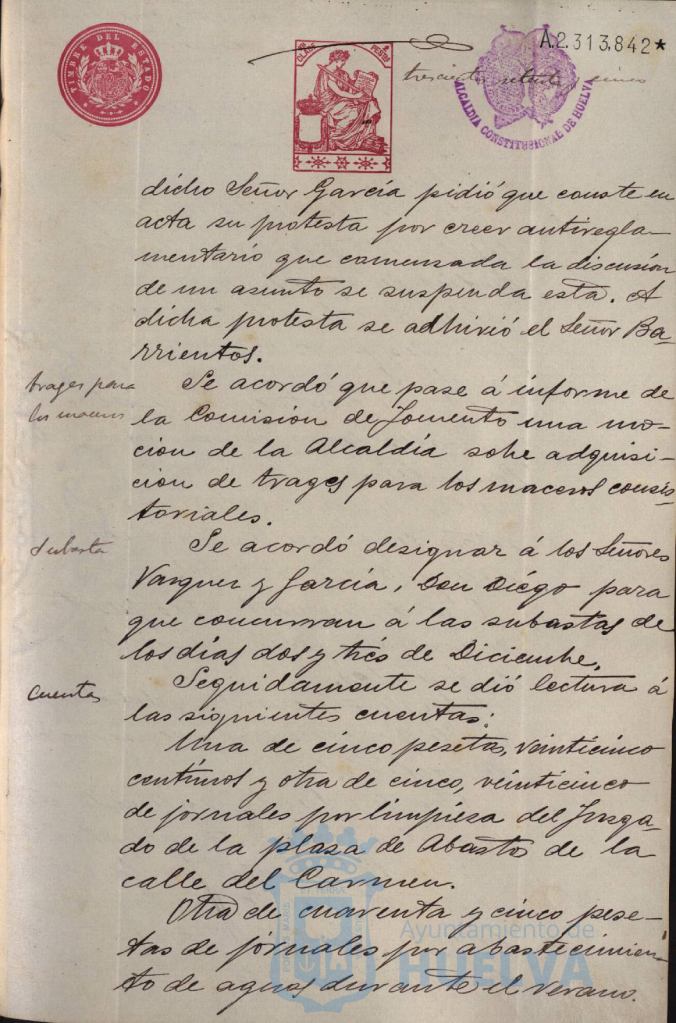 TIMBRE DEL ESTADO
CLASE
PESETAS
A.2.313,842*
trescientos setenta y cinco
ALCALDIA CONSTITUCIONAL DE HUELVA
dicho Señor García pidió que conste en
acta su protesta por creer antiregla-
mentario que comenzada la discusión
de un asunto se suspenda esta. A
dicha protesta se adhirió el Señor Ba-
rrientos.
trages para
los maceros
Se acordó que pase á informe de
la Comisión de Fomento una mo-
ción de la Alcaldía sobre adquisi-
ción de trages para los maceros consis-
toriales.
Subasta
Se acordó designar á los Señores
Vazquez y García, Don Diégo para
que concurran á las subastas de
los días dos y trés de Diciembre.
Cuentas
Seguidamente se dió lectura á
las siguientes cuentas:
Una de cinco pesetas, veinticinco
centimos y otra de cinco, veinticinco
de jornales por limpiesa del Juzga-
do de la plaza de Abastos de la
calle del Carmen.
Otra de cuarenta y cinco pese-
tas de jornales por abastecimien-
to de aguas durante el verano.
Ayuntamiento de
HUELVA